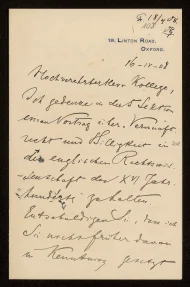 18, LINTON ROAD,
OXFORD.
16-IV-08
Hochverehrter Herr Kollege,
Ich gedenke in der Sektion
einen Vortrag über Vernunft-
recht und Billigkeit in
der englischen Rechtswis-
senschaft des XVI Jahr-
hunderts zu halten.
Entschuldigen Sie, dass ich
Sie nicht früher davon
in Kenntniss gesetzt